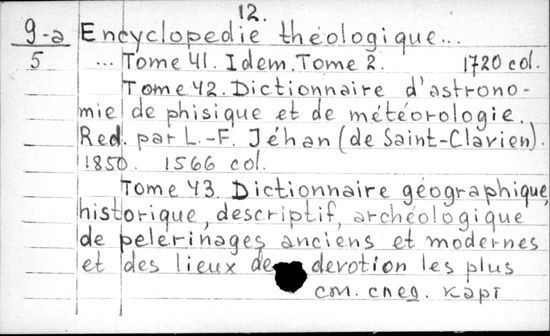 12.
9-a Encyclopedie théologique...
5 ... Tome 41. Idem. Tome 2. 1720 col.
Tome 42. Dictionnaire d'astrono-
mie de phisique et de météorologie.
Red. par L.-F. Jéhan (de Saint-Clavien).
1850. 1566 col.
Tome 43. Dictionnaire géographique,
historique, descriptif, archéologique
de pelerinages anciens et modernes
et des lieux de devotion les plus
см. след. карт